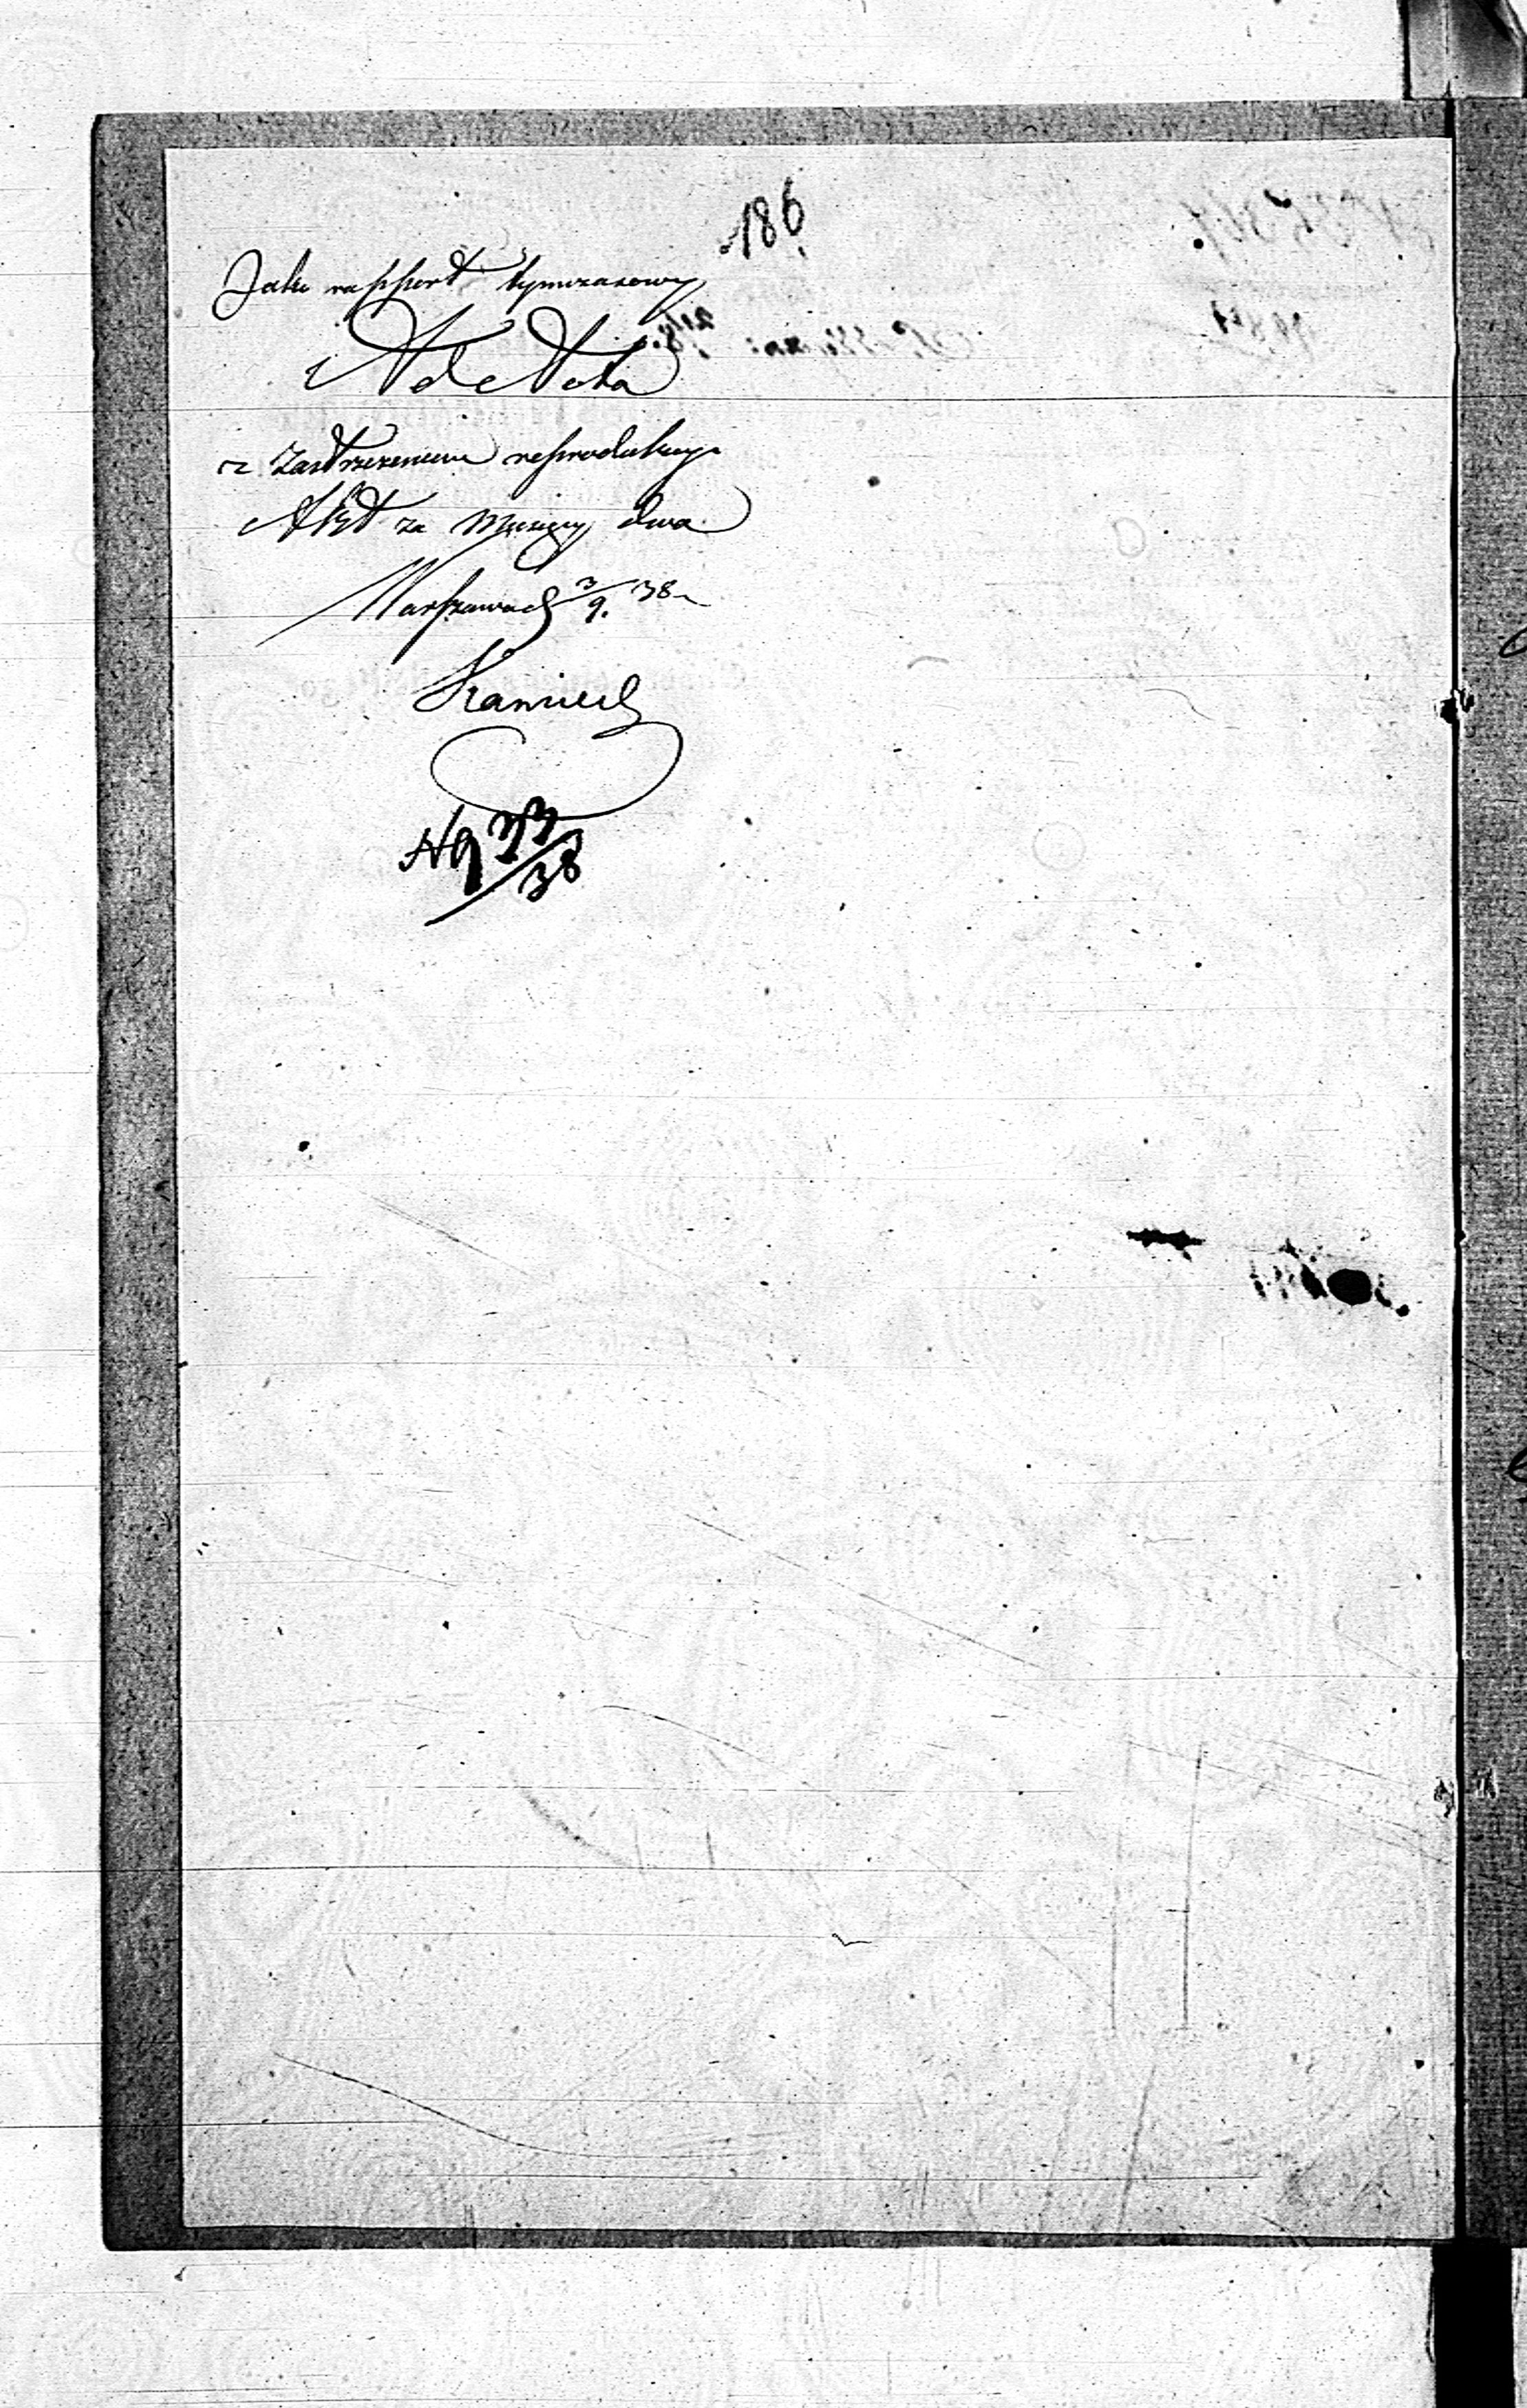 186
Jako rapport tymczasowy
Ad Acta
z zastrzeżeniem reprodukcyi
Akt za Miesięcy dwa
Warszawa d 3/9. 38
N 933/38